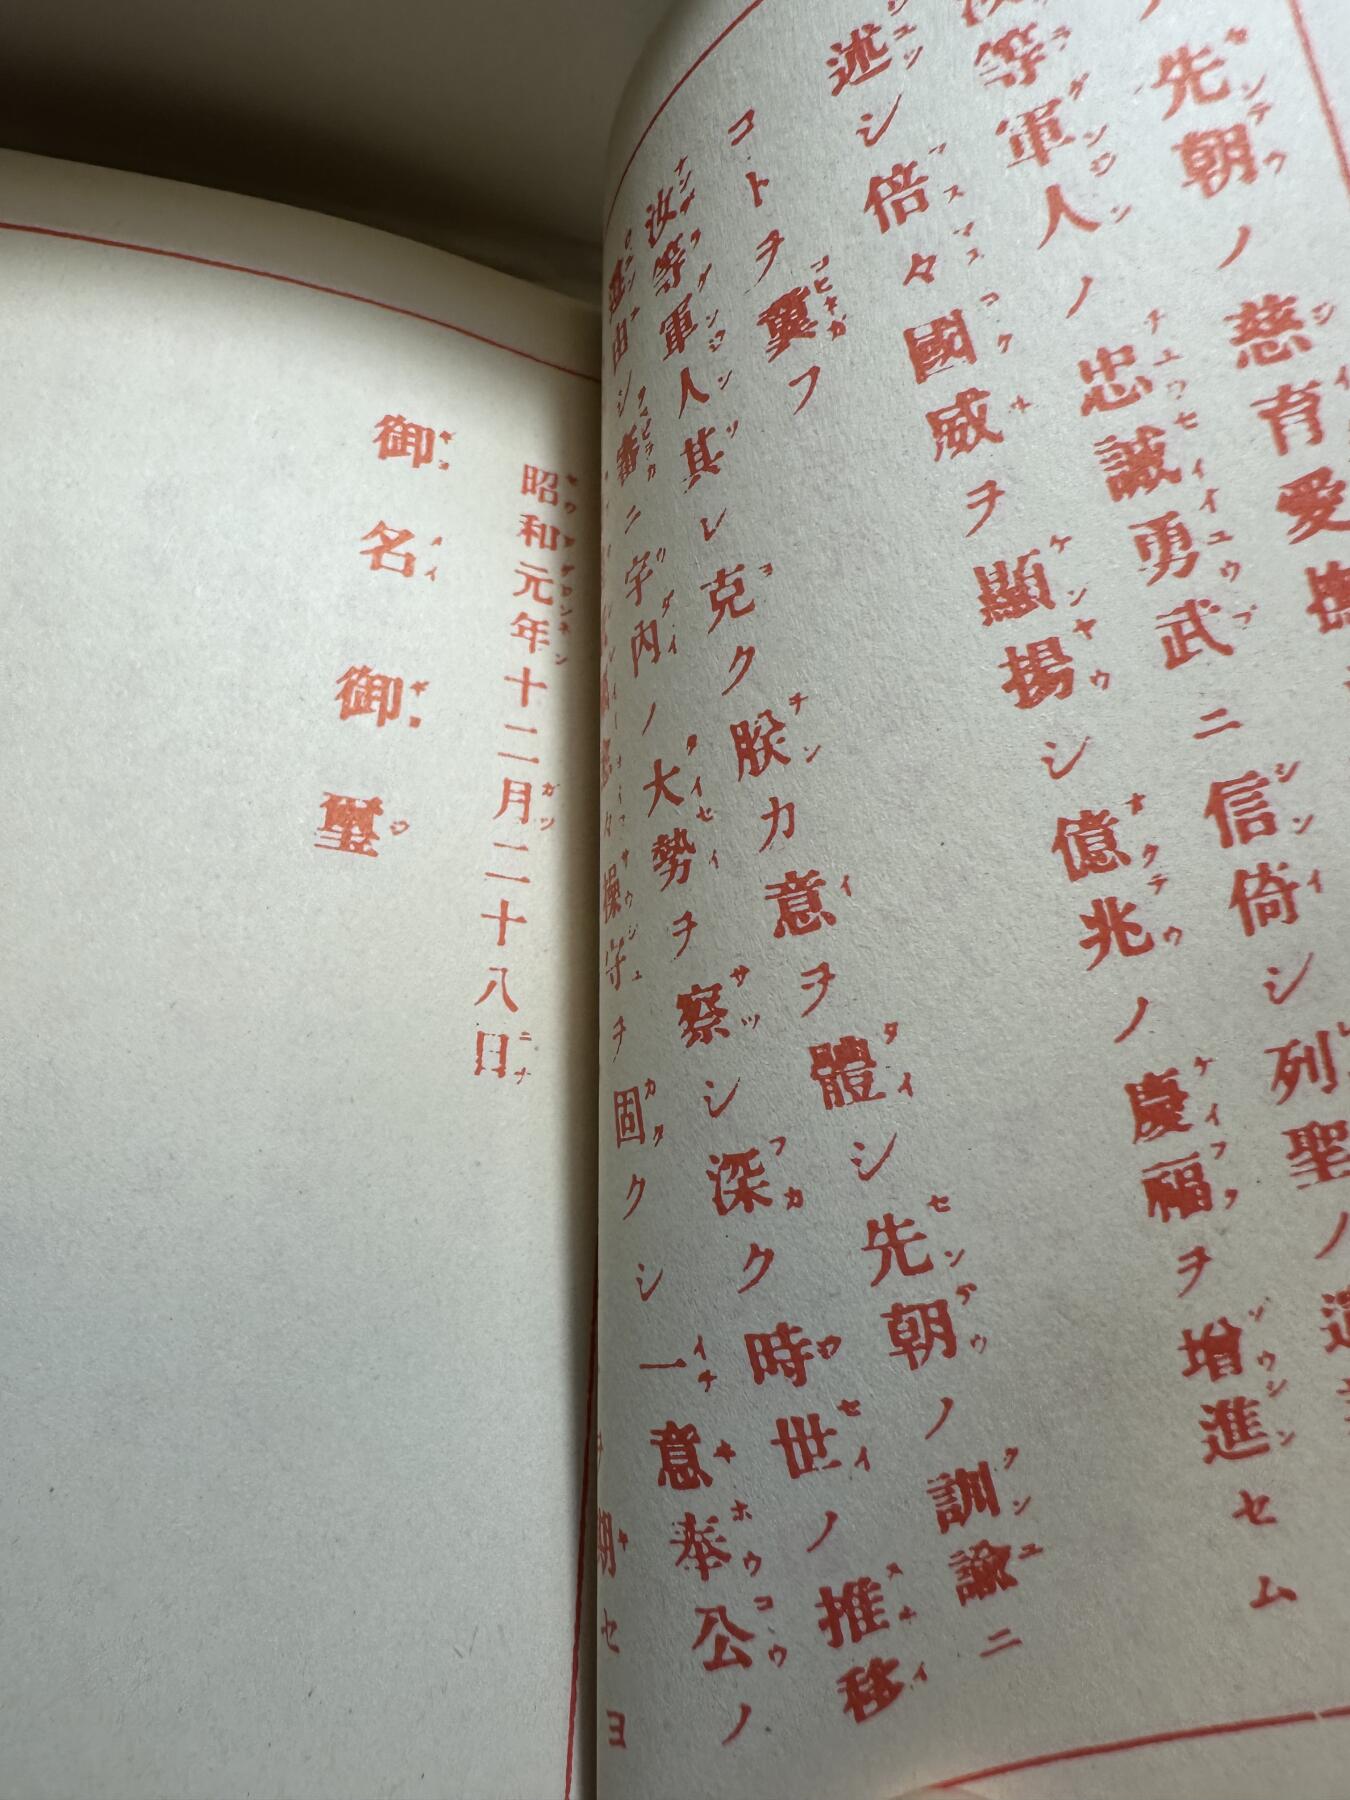 先朝ノ慈育愛撫
汝等軍人ノ忠誠勇武ニ信倚シ列聖ノ遺
述シ倍々國威ヲ顯揚シ億兆ノ慶福ヲ増進セム
コトヲ冀フ
汝等軍人其レ克ク朕カ意ヲ體シ先朝ノ訓諭ニ
遵由シ審ニ宇内ノ大勢ヲ察シ深ク時世ノ推移
々操守ヲ固クシ一意奉公ノ
ヲ期セヨ
昭和元年十二月二十八日
御名御璽